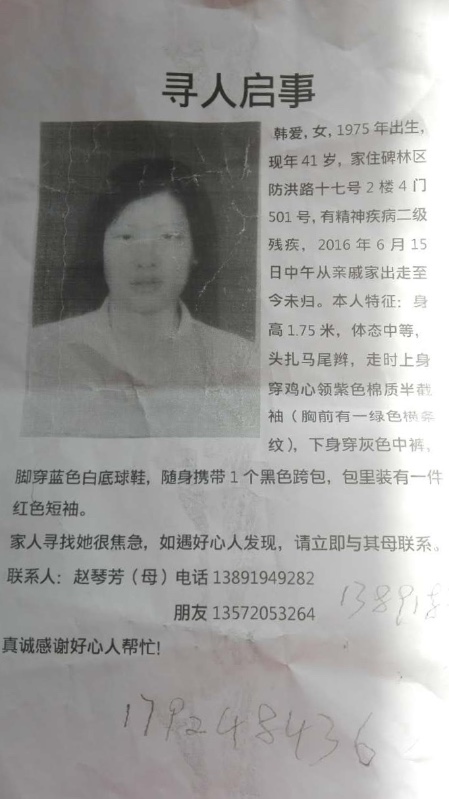 寻人启事
韩爱，女，1975年出生，
现年41岁，家住碑林区
防洪路十七号2楼4门
501号，有精神疾病二级
残疾，2016年6月15
日中午从亲戚家出走至
今未归。本人特征：身
高1.75米，体态中等，
头扎马尾辫，走时上身
穿鸡心领紫色棉质半截
袖（胸前有一绿色横条
纹），下身穿灰色中裤，
脚穿蓝色白底球鞋，随身携带1个黑色跨包，包里装有一件
红色短袖。
家人寻找她很焦急，如遇好心人发现，请立即与其母联系。
联系人：赵琴芳（母）电话13891949282
朋友13572053264
138918
真诚感谢好心人帮忙！
179248436